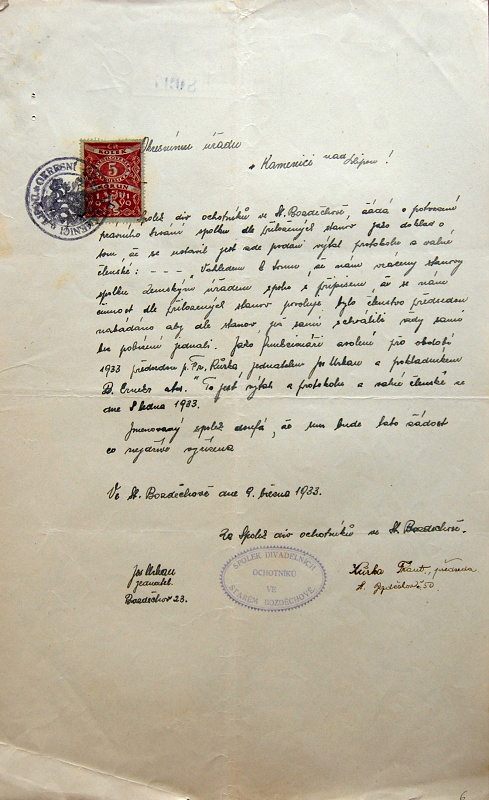 Okresnímu úřadu
v Kamenici nad Lipou!
KOLEK
5
KORUN
OKRESNÍ
Spolek div ochotníků ve St. Bozděchově, žádá o potvrzení
právního trvání spolku dle přiložených stanov. Jako doklad o
tom, že se ustavil jest zde podán výtah protokolu o valné
členské: - - - „Vzhledem k tomu, že nám vráceny stanovy
spolku Zemským úřadem spolu s přípisem, že se nám
činnost dle přiložených stanov povoluje, bylo členstvo předsedou
nabádáno aby dle stanov, jež sami schválili vždy samo
jednali. Jako funkcionáři zvoleni pro období
1933 předsedou p. Fr. Kůrka, jednatelem Jos Urban a pokladníkem
B. atd." To jest výtah z protokolu o valné členské ze
dne 8 ledna 1933.
Jmenovaný spolek doufá, že mu bude tato žádost
co nejdříve vyřízena
Ve St. Bozděchově dne 9. března 1933.
Za Spolek div ochotníků ve St. Bozděchově.
Jos Urban
jednatel.
Bozděchov 23.
SPOLEK DIVADELNÍCH
OCHOTNÍKŮ
VE
STARÉM BOZDĚCHOVĚ.
Kůrka Frant, předseda
St. Bozděchov 50
6